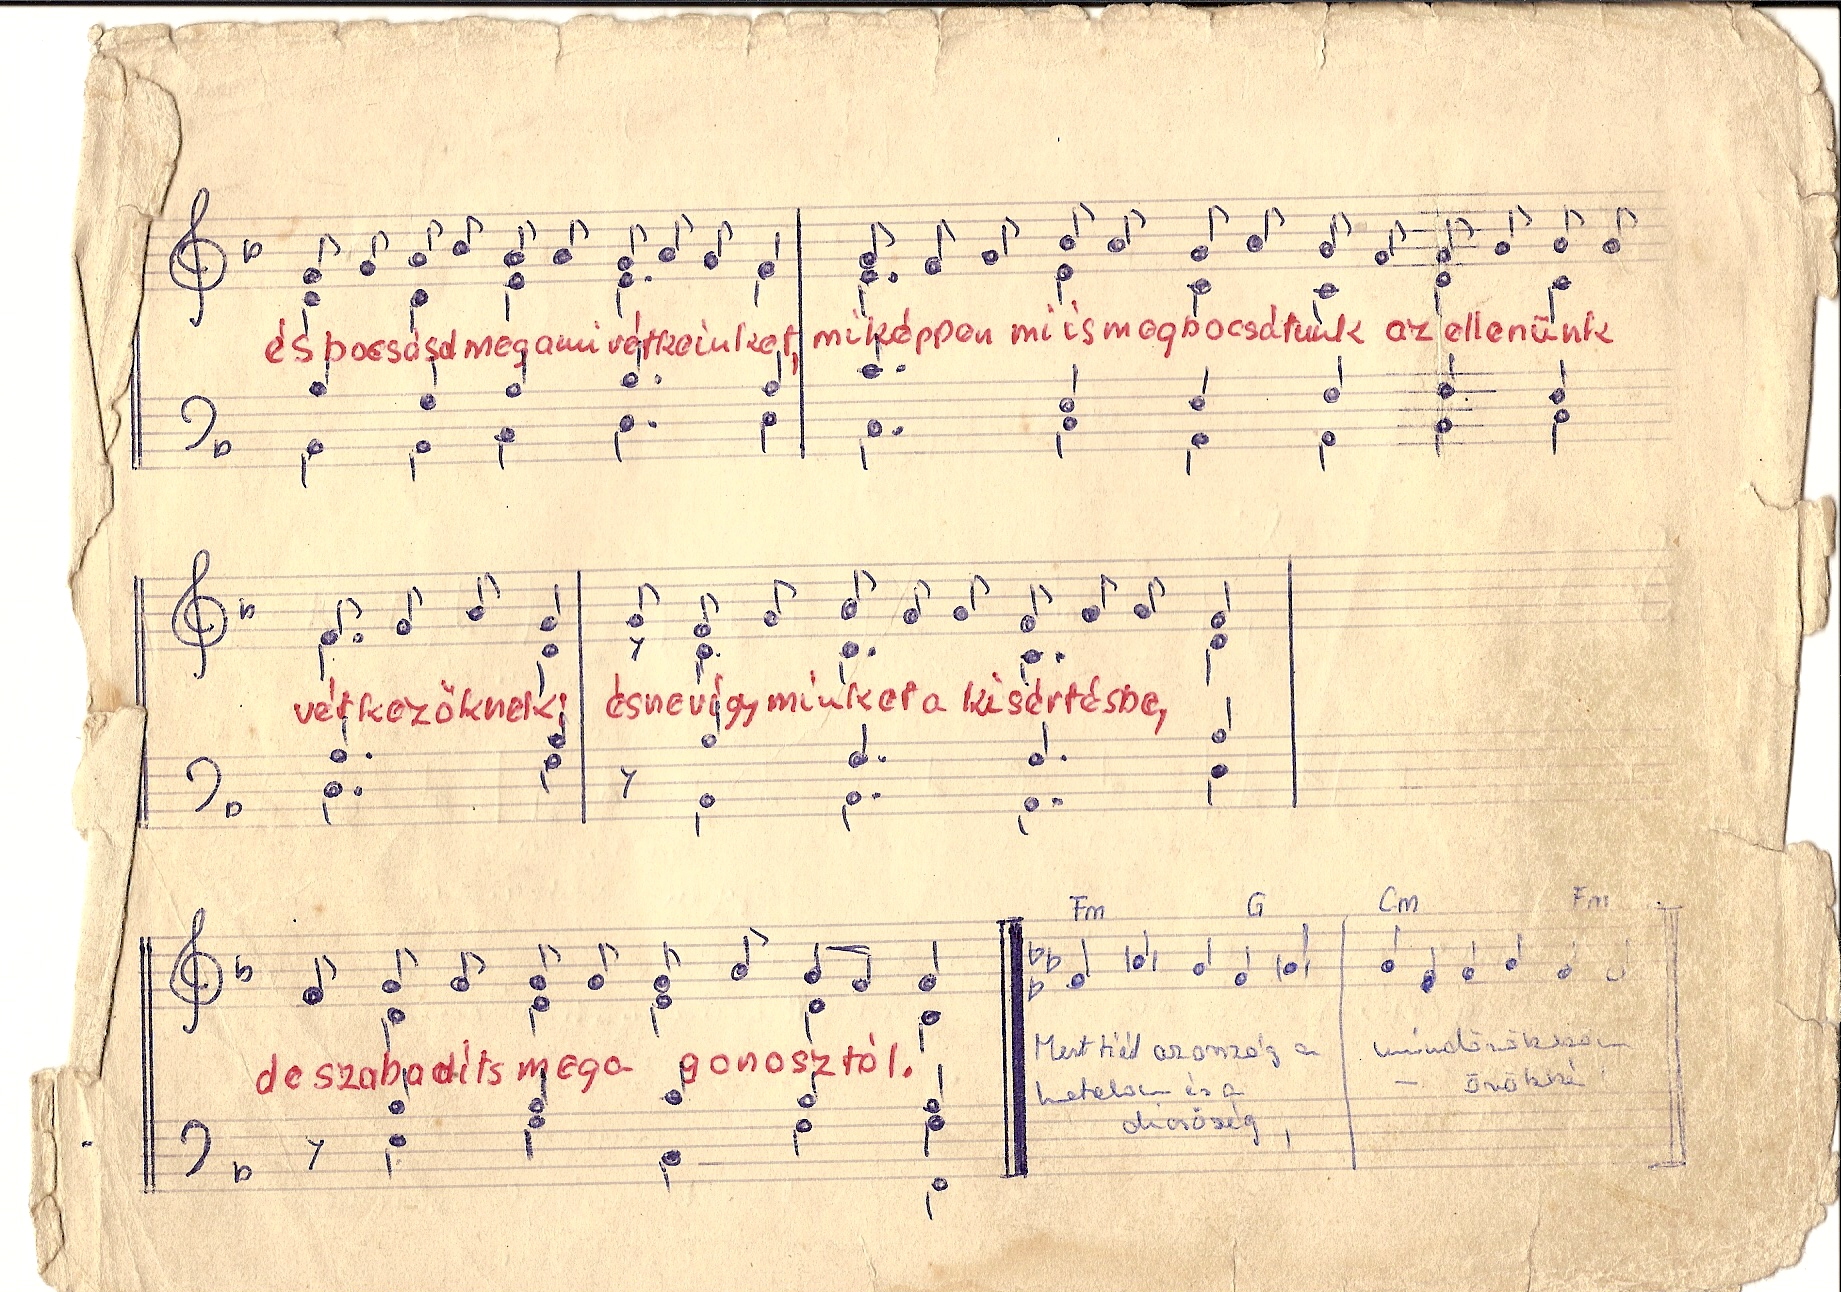 és bocsásd meg a mi vétkeinket, miképpen mi is megbocsátunk az ellenünk
vétkezőknek; és ne vígy minket a kisértésbe,
de szabadíts meg a gonosztól.
Fm G Cm Fm
Mert tiéd az ország a
hatalom és a
dicsőség,
mindörökkön
– örökké!